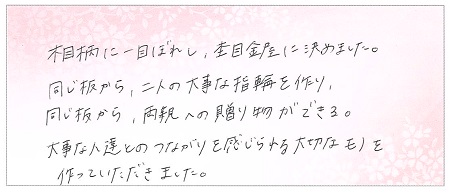 木目柄に一目ぼれし、杢目金屋に決めました。
同じ板から、二人の大事な指輪を作り、
同じ板から、両親への贈り物ができる。
大事な人達とのつながりを感じられる大切なモノを
作っていただきました。